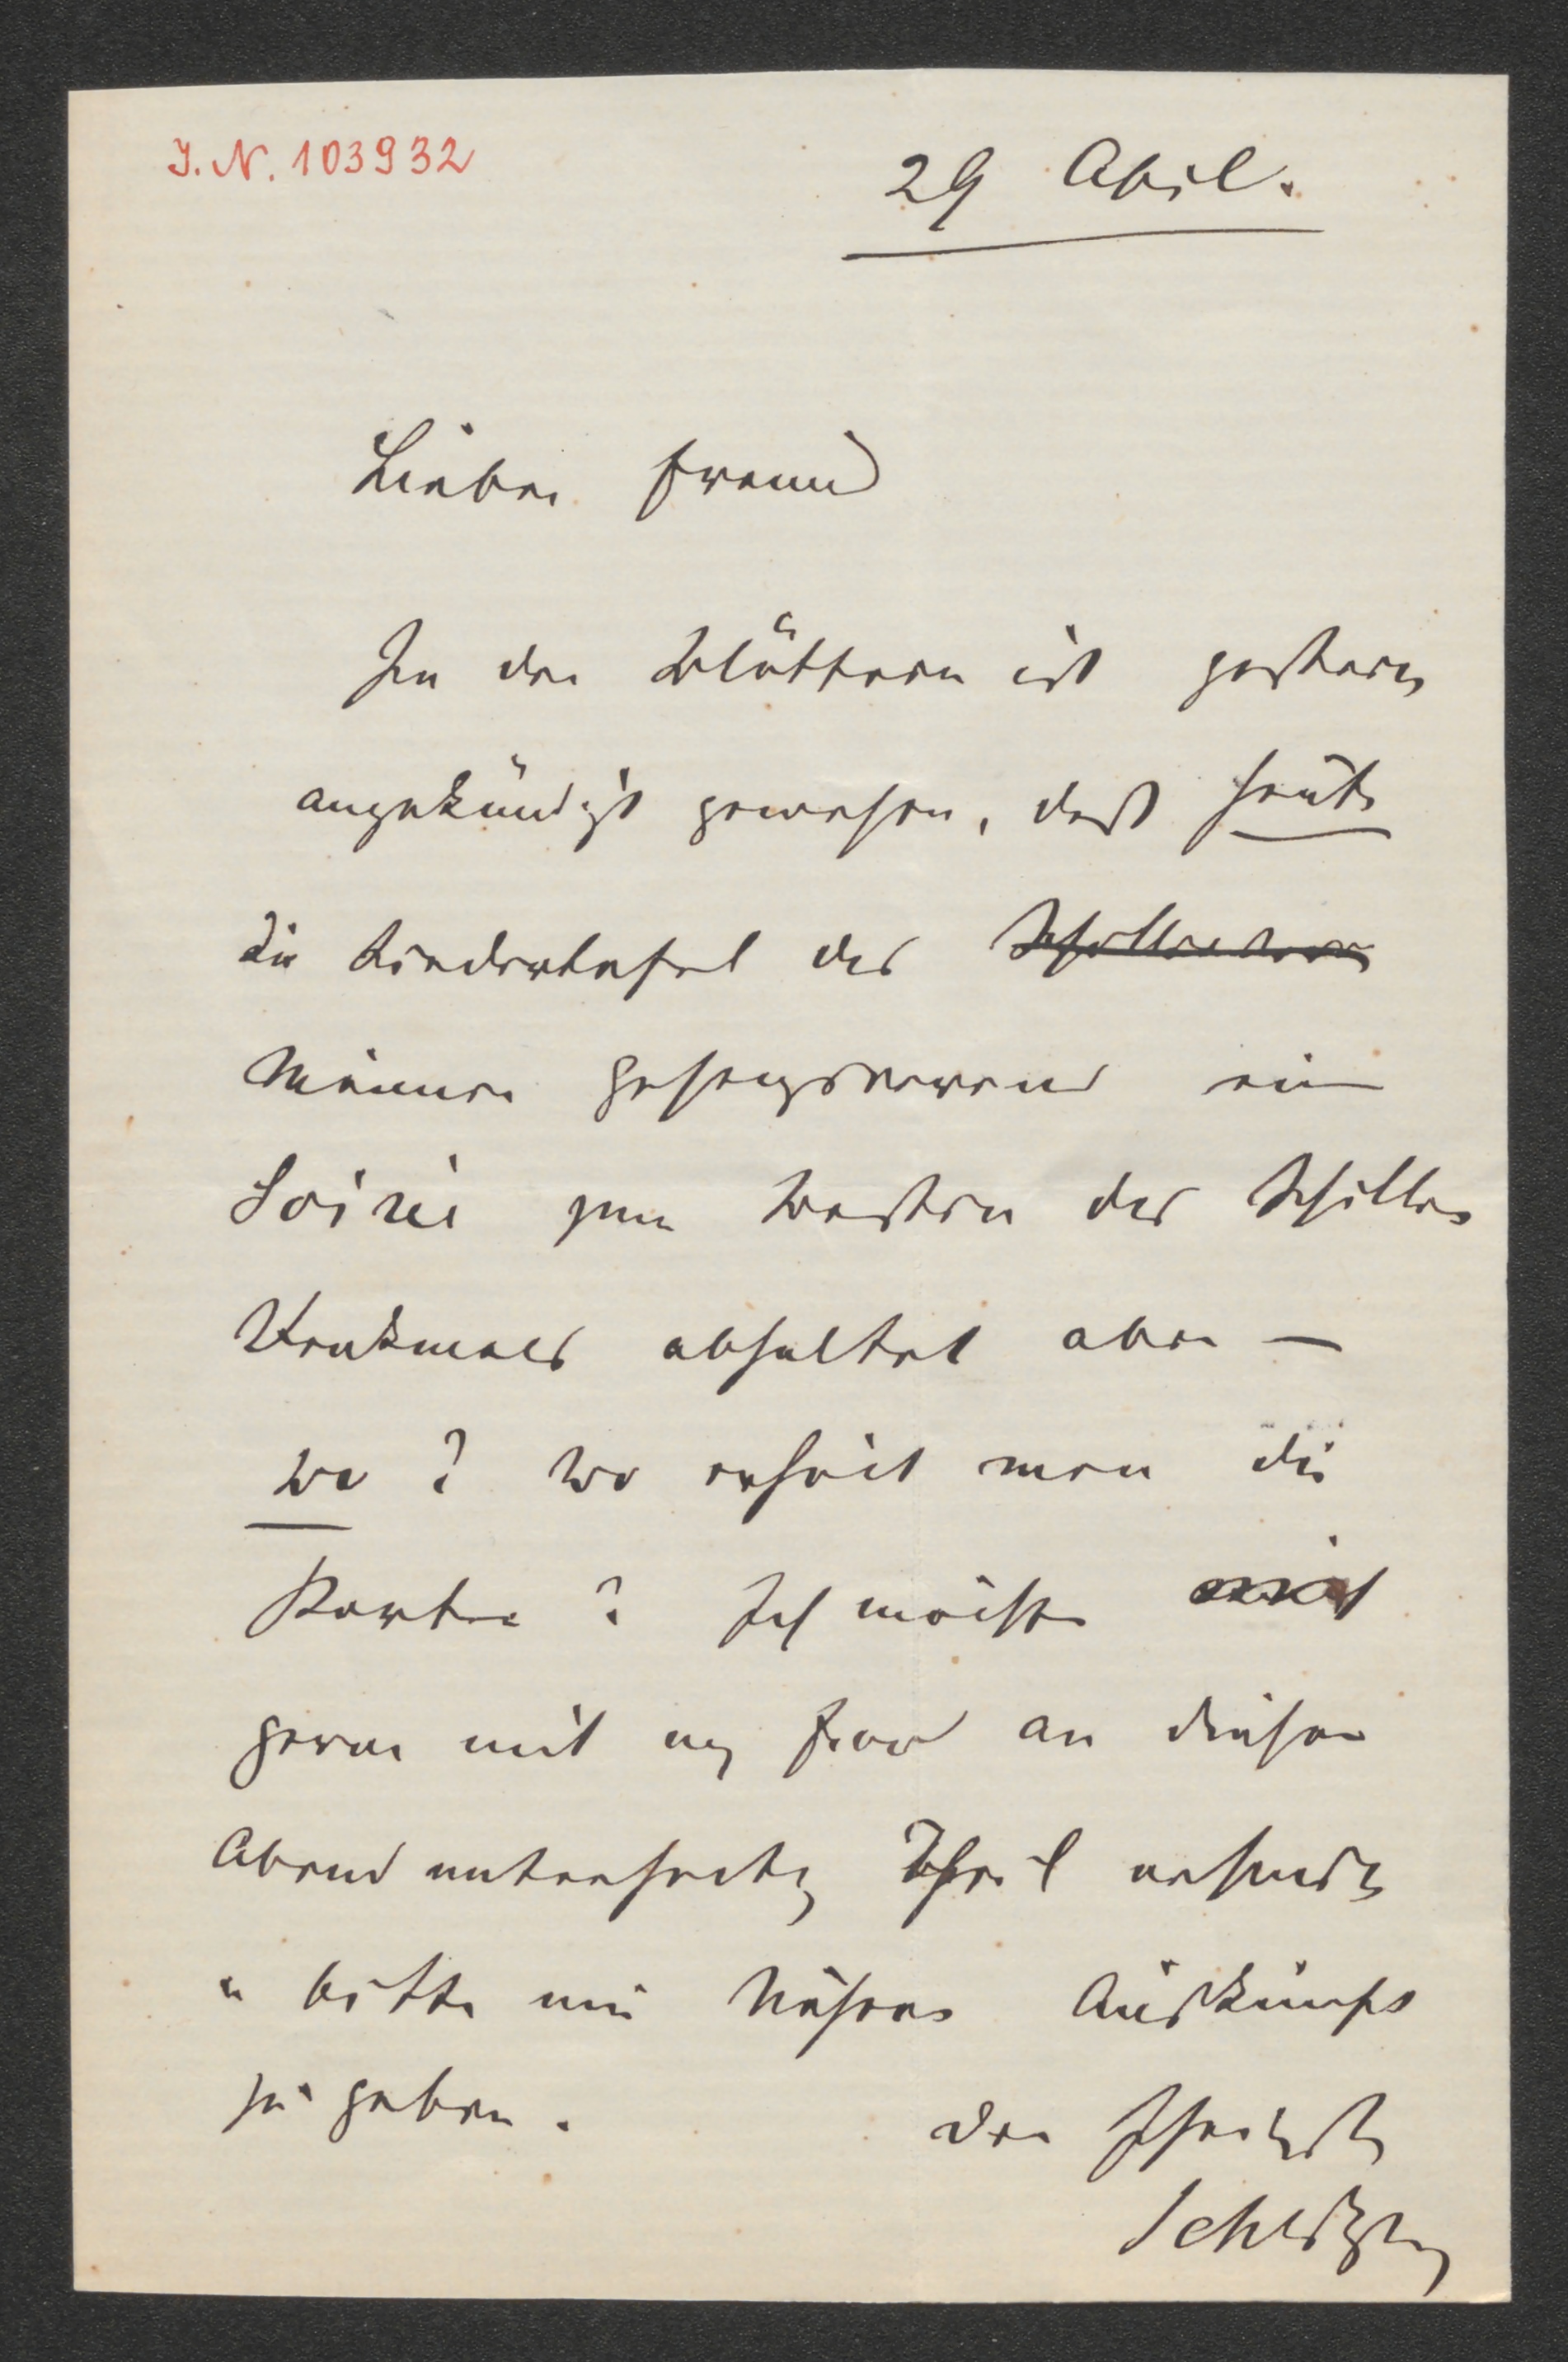 I. N. 103932
29 April.
Lieber Freund
In den Blättern ist gestern
angekündigt gewesen, daß heute
die Liedertafel des
Männer Gesangverein eine
Soirée zum Besten des Schiller
Denkmals abhaltet aber —
wo? wo erhält man die
Karten? Ich möchte
gerne mit Frau an dieser
Abendunterhaltg Theil nehmen
u bitte mir nähere Auskunft
zu geben.
Der Ihrigste